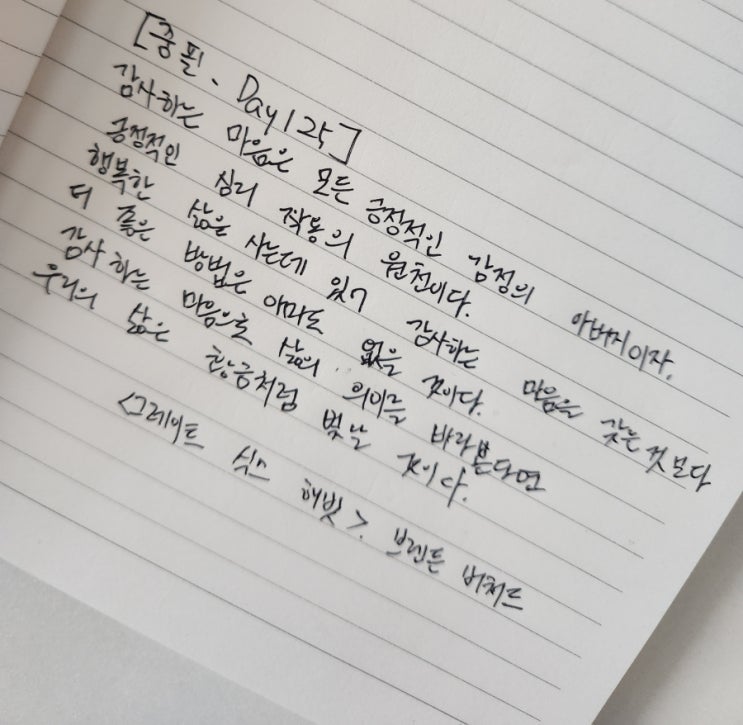 [중필、Day125]
감사하는 마음은 모든 긍정적인 감정의 아버지이자,
긍정적인 심리 작용의 원천이다.
행복한 삶을 사는데 있어 감사하는 마음을 갖는 것보다
더 좋은 방법은 아마도 없을 것이다.
감사하는 마음으로 삶의 의미를 바라본다면
우리의 삶은 황금처럼 빛날 것이다.
<그레이트 식스 해빗>. 브렌든 버처드